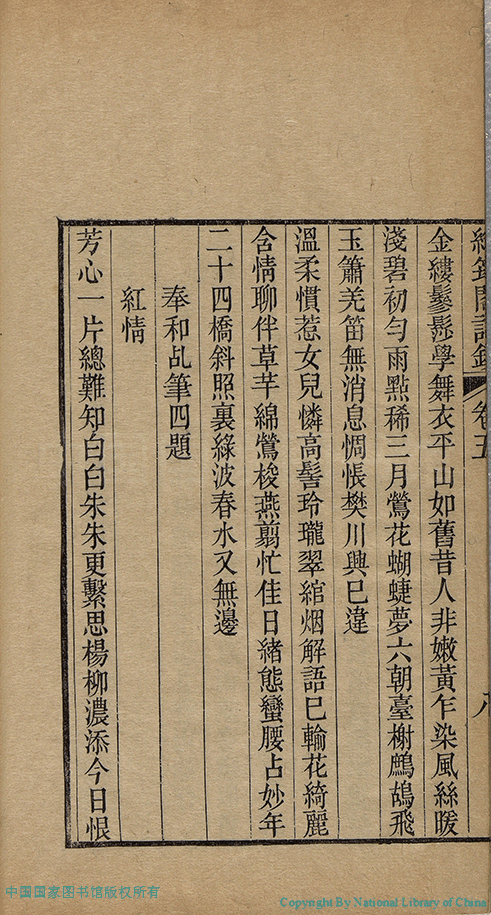 卷五
八
金縷鬖髿學舞衣平山如舊昔人非嫩黃乍染風絲暖
淺碧初勻雨點稀三月鶯花蝴蜨夢六朝臺榭鷓鴣飛
玉簫羌笛無消息惆悵樊川興巳違
溫柔慣惹女兒憐高髻玲瓏翠綰烟解語巳輸花綺麗
含情聊伴草芊綿鶯梭燕翦忙佳日緒態蠻腰占妙年
二十四橋斜照裏綠波春水又無邊
奉和乩筆四題
紅情
芳心一片總難知白白朱朱更繫思楊柳濃添今日恨
中国国家图书馆版权所有
Copyright By National Library of China